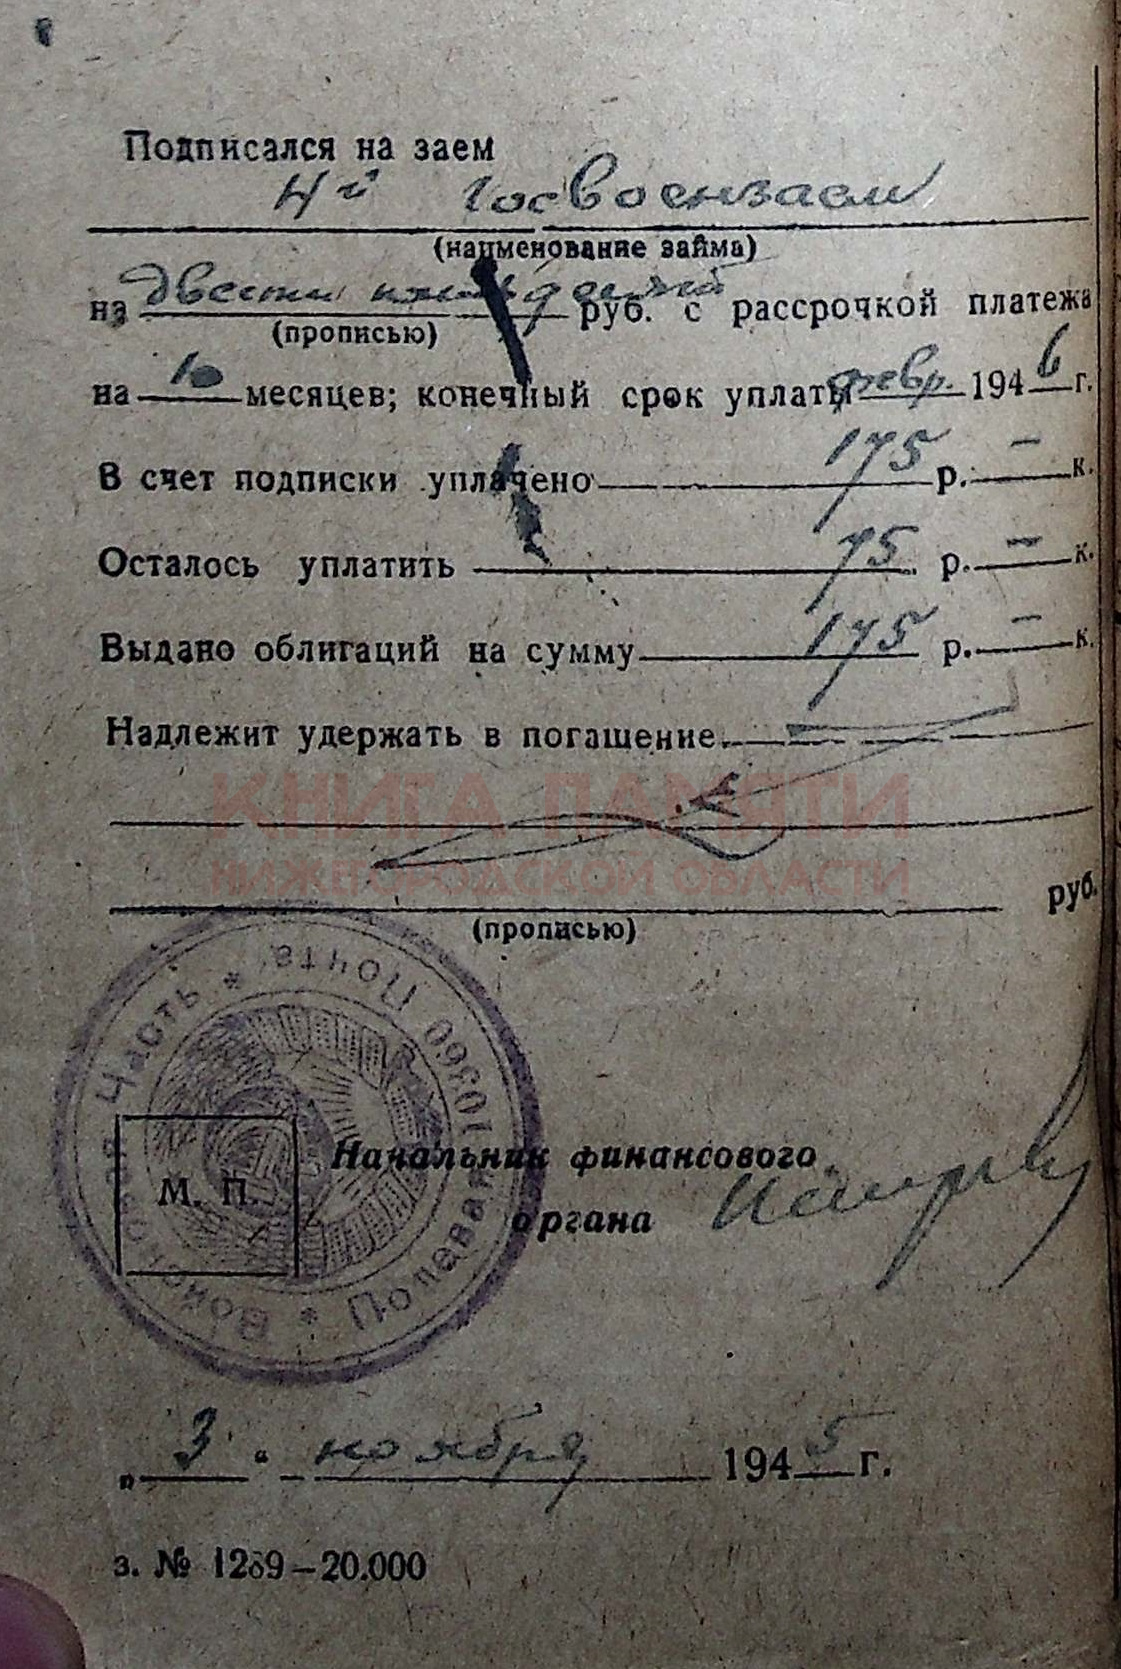 Подписался на заем
4й Госвоензаем
(наименование займа)
на двести пятьдесят руб. с рассрочкой платежа
(прописью)
на 10 месяцев; конечный срок уплаты февр. 1946 г.
В счет подписки уплачено 175 р. — к.
Осталось уплатить 75 р. — к.
Выдано облигаций на сумму 175 р. — к.
Надлежит удержать в погашение
КНИГА ПАМЯТИ
НИЖЕГОРОДСКОЙ ОБЛАСТИ
руб.
(прописью)
Войсковая Часть * Полевая Почта 10360 *
Начальник финансового
М. П.
органа
„ 3 “ ноября 1945 г.
з. № 1289–20.000